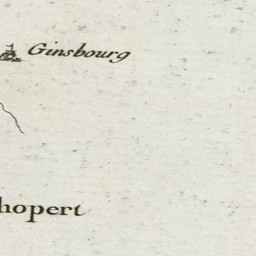 Ginsbourg
hopert